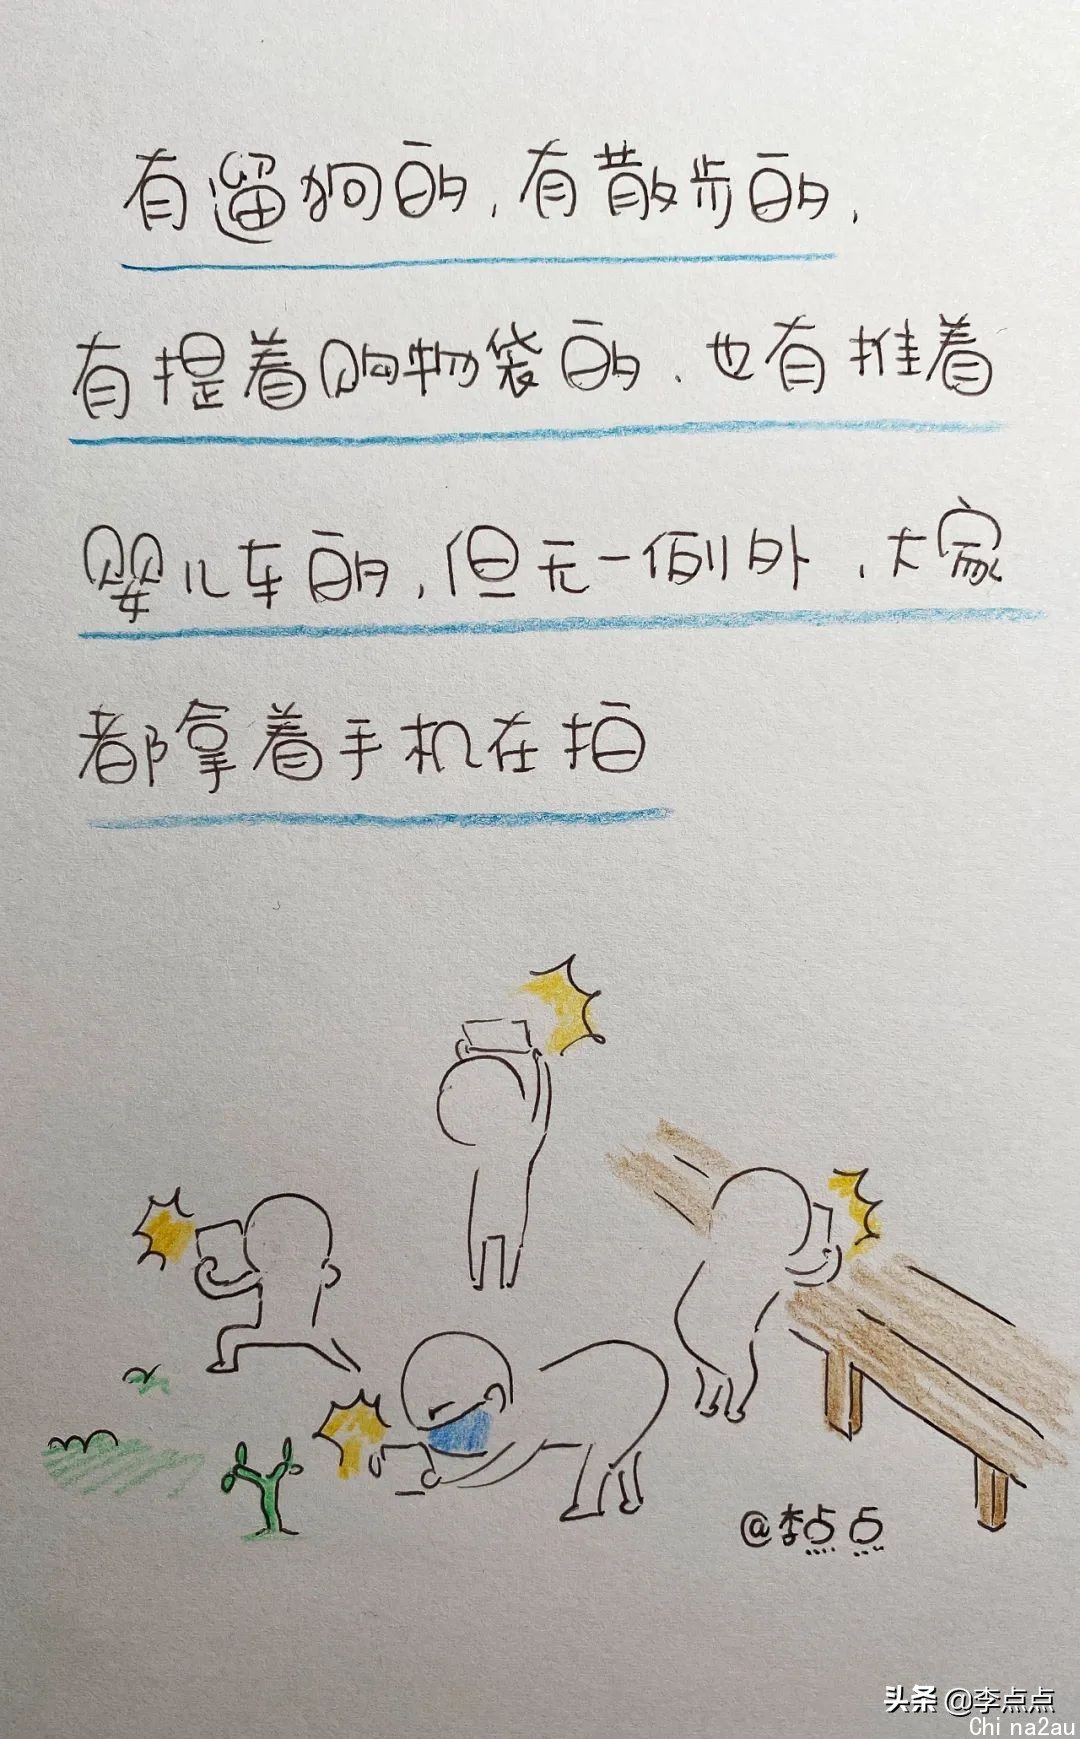 有遛狗的,有散步的,
有提着购物袋的、也有推着
婴儿车的,但无一例外,大家
都拿着手机在拍
@李点点
头条 @李点点
Chi na2au